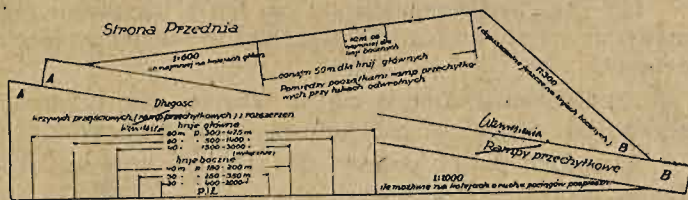 Strona Przednia
1:600
co najmniej na kolejach główn.
10m co
najmniej dla
linji bocznych
conajm 50m dla linij głównych
Pomiędzy początkami ramp przechyłko-
wych przy łukach odwrotnych
1:300
(dopuszczalne jeszcze na kolejach bocznych)
A
A
Długość
krzywych przejściowych (ramp przechyłkowych) i rozszerzeń
linje główne
80m p. 300-475m
60 • 500-1400
40 • 1500-3000
(wyłącznie)
linje boczne
40m p 180-200m
30 • 250-350m
20 • 400-2000
p12
Rampy przechyłkowe
B
B
1:1000
ile możliwe na kolejach o ruchu pociągów pospieszn